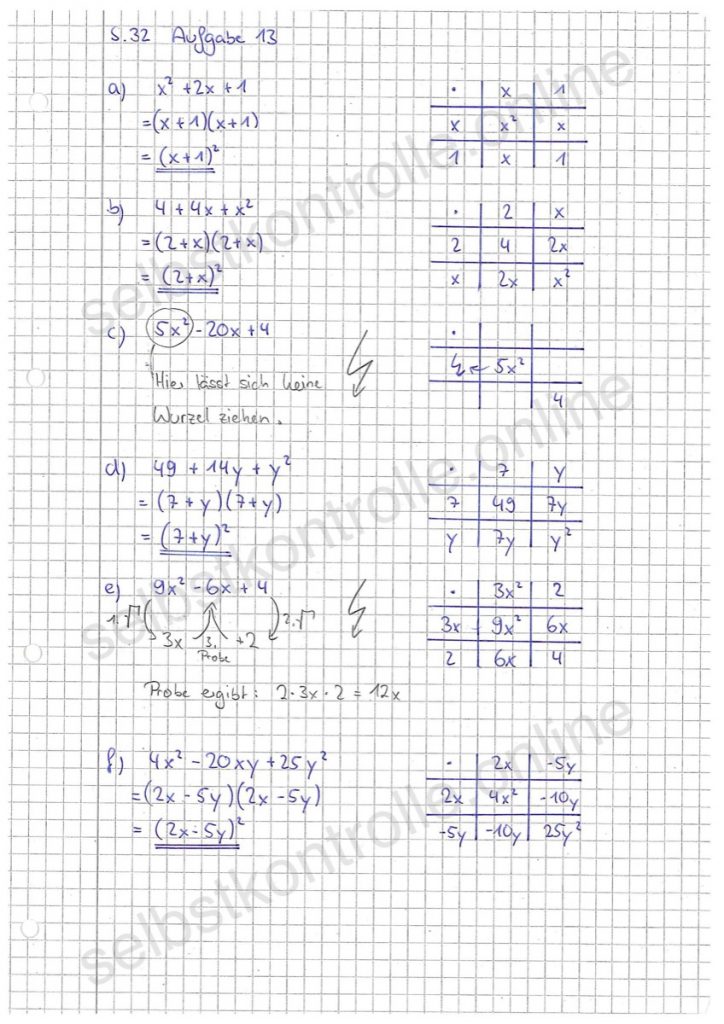 S.32 Aufgabe 13
a) x² + 2x + 1
= (x + 1)(x + 1)
= (x + 1)²
· x 1
x x² x
1 x 1
b) 4 + 4x + x²
= (2 + x)(2 + x)
= (2 + x)²
· 2 x
2 4 2x
x 2x x²
c) 5x² - 20x + 4
Hier lässt sich keine
Wurzel ziehen.
·
↯ ← 5x²
4
d) 49 + 14y + y²
= (7 + y)(7 + y)
= (7 + y)²
· 7 y
7 49 7y
y 7y y²
e) 9x² - 6x + 4
1. √ 3x 3. +2 2. √
Probe
Probe ergibt: 2 · 3x · 2 = 12x
· 3x² 2
3x 9x² 6x
2 6x 4
f) 4x² - 20xy + 25y²
= (2x - 5y)(2x - 5y)
= (2x - 5y)²
· 2x -5y
2x 4x² -10y
-5y -10y 25y²
selbstkontrolle.online
selbstkontrolle.online
selbstkontrolle.online